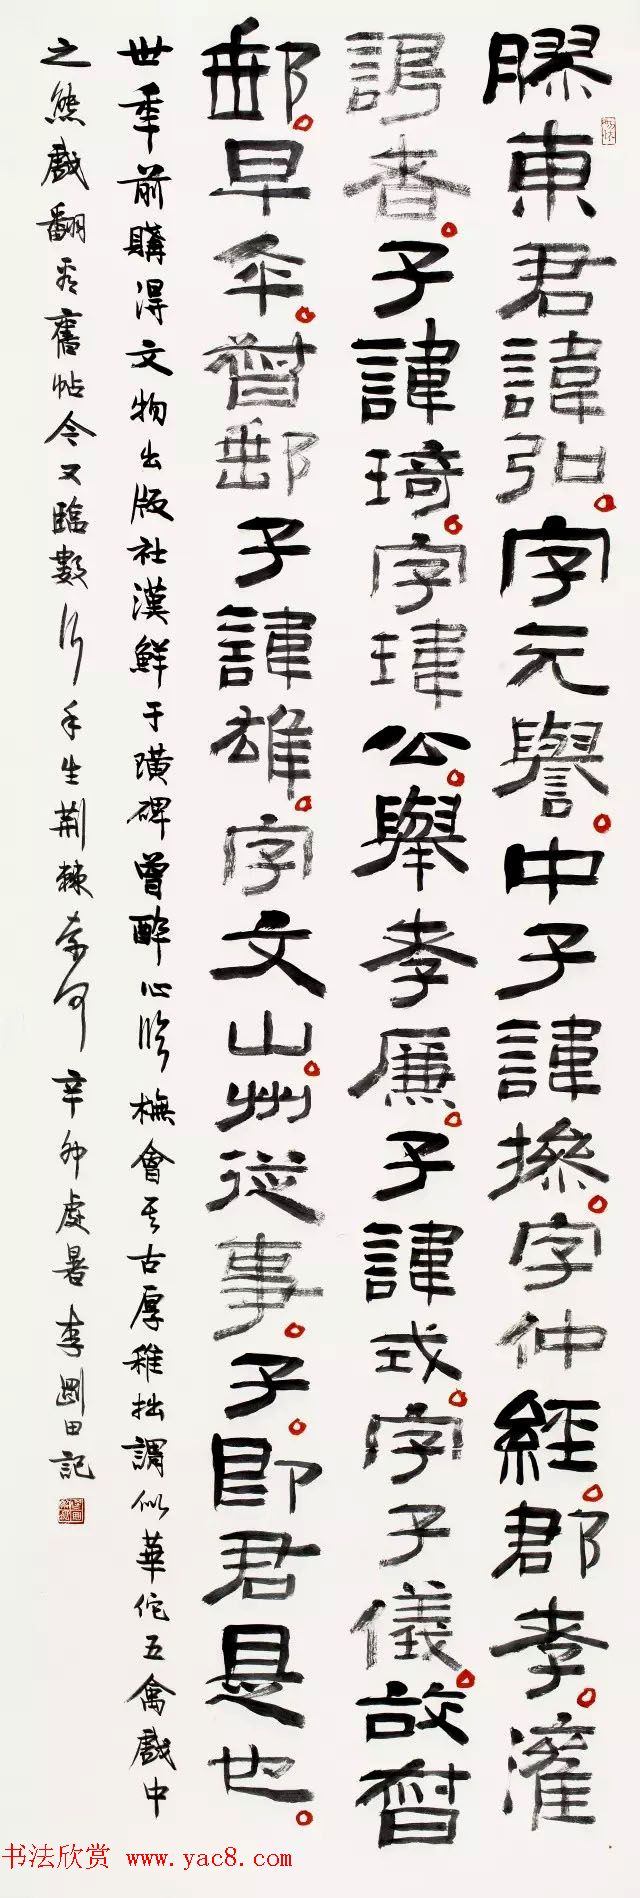 膠東君諱弘。字元譽。中子諱操。字仲經。郡孝。灌
謁者。子諱琦。字瑋公。舉孝廉。子諱式。字子儀。故督
郵。早卒。督郵子諱雄。字文山。州從事。子。即君是也。
年前購得文物出版社漢鮮于璜碑曾醉心臨橅會其古厚稚拙謂似華佗五禽戲中
之熊戲翻看舊帖今又臨數行手生荊棘奈何辛卯處暑李剛田記
书法欣赏 www.yac8.com